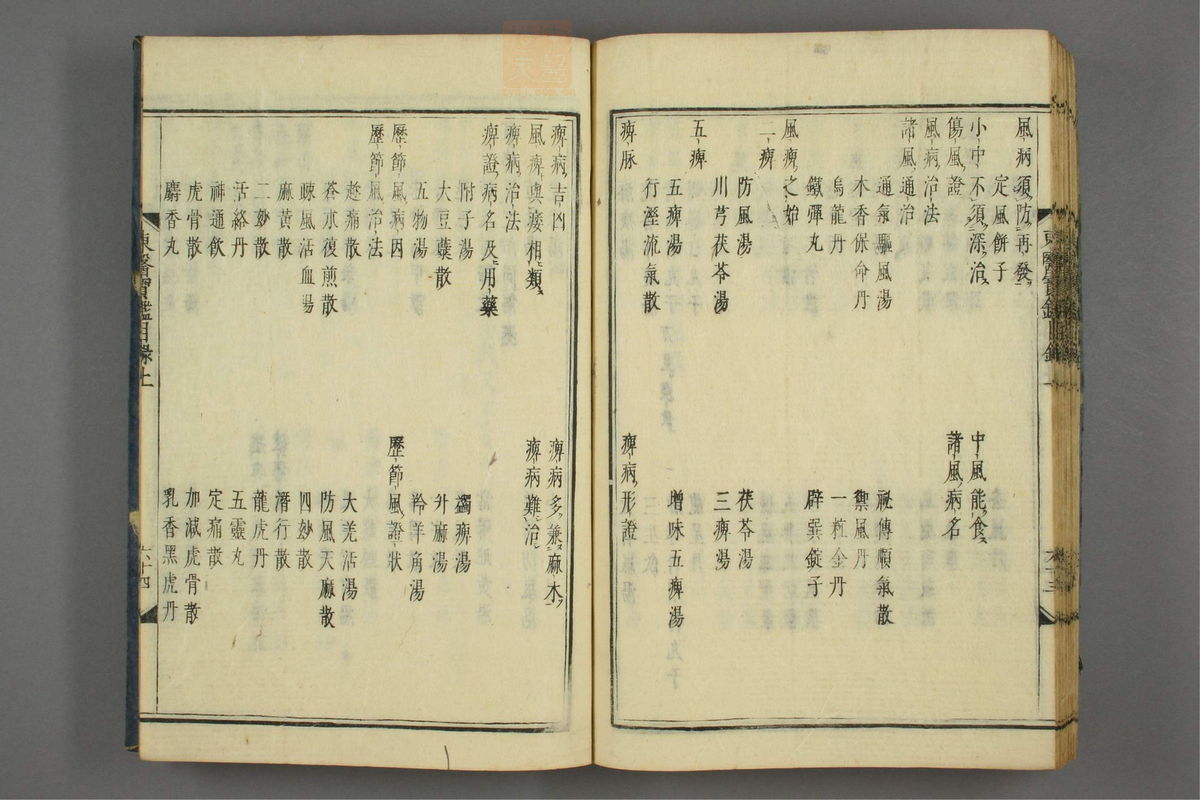 風病須防再發
定風餅子
小中不須深治　中風能食
傷風證　諸風病名
風病治法
諸風通治
通氣驅風湯　祕傳順氣散
木香保命丹　禦風丹
烏龍丹　一粒金丹
鐵彈丸　辟巽錠子
風痺之始
二痺
防風湯　茯苓湯
川芎茯苓湯　三痺湯
五痺
五痺湯　增味五痺湯
行溼流氣散
痺脉　痺病形證
痺病吉凶　痺病多兼麻木
風痺與痿相類　痺病難治
痺病治法
痺證病名及用藥
附子湯　蠲痺湯
大豆糵散　升麻湯
五物湯　羚羊角湯
歷節風病因　歷節風證狀
歷節風治法
趂痛散　大羌活湯
蒼朮復煎散　防風天麻散
疎風活血湯　四妙散
麻黃散　潛行散
二妙散　龍虎丹
活絡丹　五靈丸
神通飲　定痛散
虎骨散　加减虎骨散
麝香丸　乳香黑虎丹
東醫寶鑑目錄上　六十四